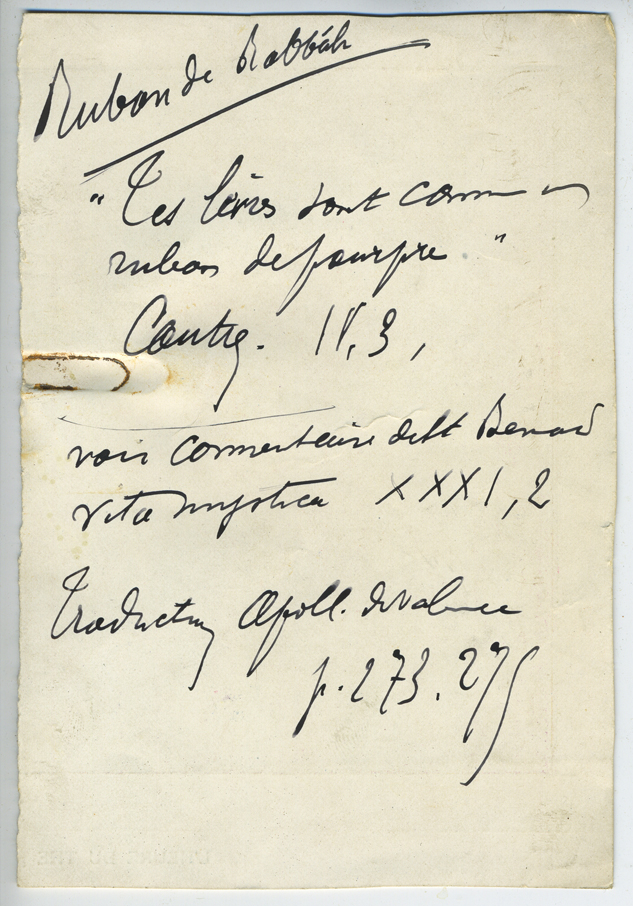 Ruban de Rabbáh
"Tes lèvres sont comme un
ruban de pourpre."
Cantq. IV, 3,
voir commentaire de St Bernard
Vita mystica XXXI, 2
Traduction Apoll. de Valence
p. 273. 275